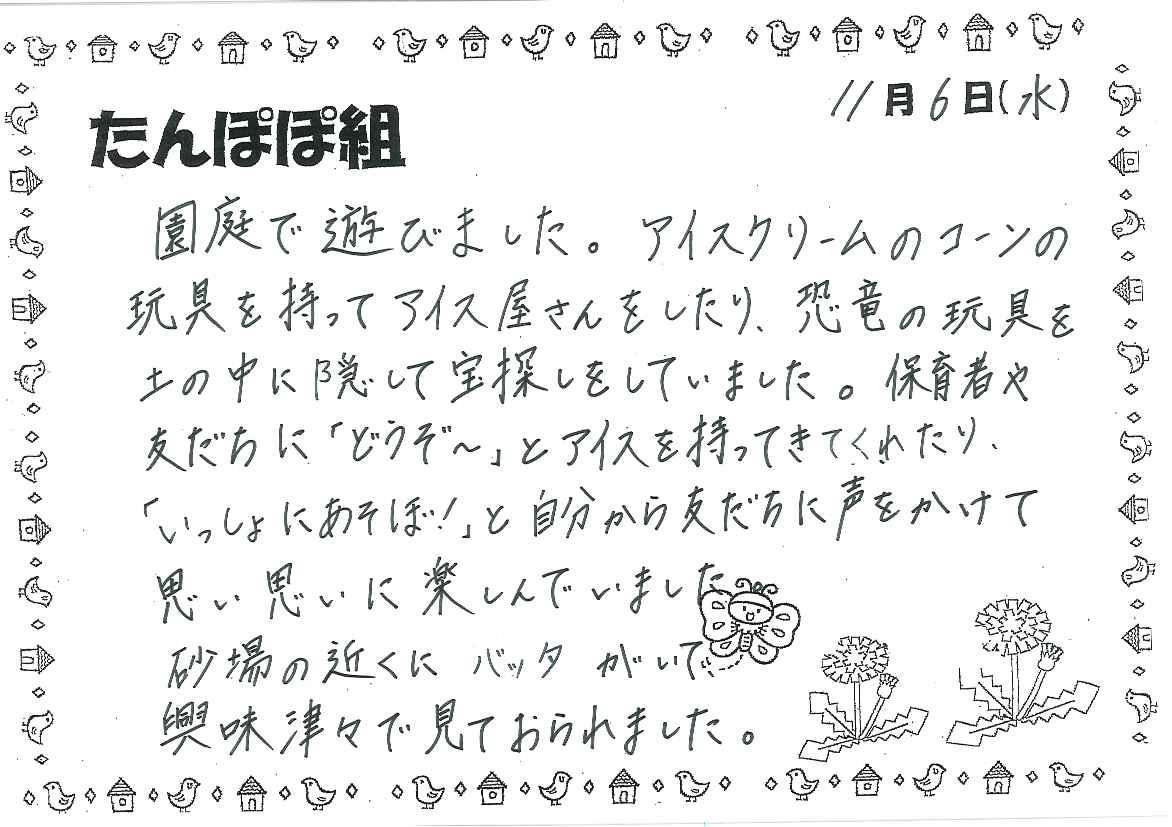 11月6日(水)
たんぽぽ組
園庭で遊びました。アイスクリームのコーンの
玩具を持ってアイス屋さんをしたり、恐竜の玩具を
土の中に隠して宝探しをしていました。保育者や
友だちに「どうぞ〜」とアイスを持ってきてくれたり、
「いっしょにあそぼ!」と自分から友だちに声をかけて
思い思いに楽しんでいました
砂場の近くにバッタがいて
興味津々で見ておられました。